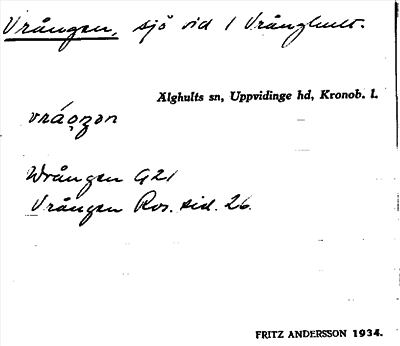 Vrången, sjö vid 1 Vrånghult.
Älghults sn, Uppvidinge hd, Kronob. l.
Wrången G21
Vrången Ros. sid. 26.
FRITZ ANDERSSON 1934.